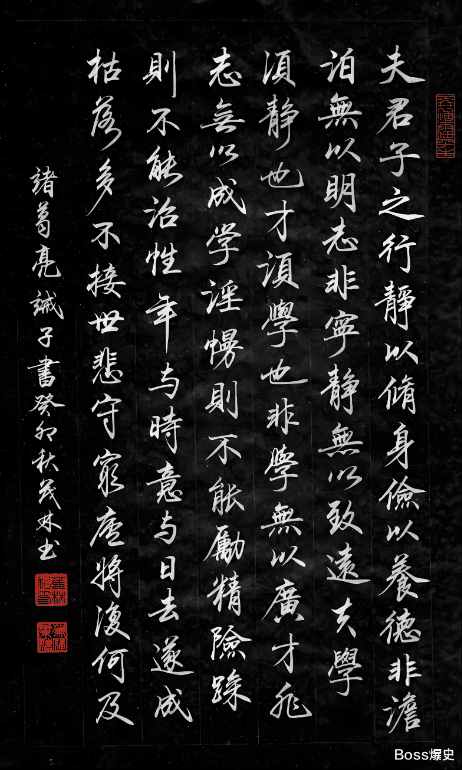 夫君子之行靜以脩身儉以養德非澹
泊無以明志非寧靜無以致遠夫學
須静也才須學也非學無以廣才非
志無以成学淫慢則不能勵精險躁
則不能治性年与時意与日去遂成
枯落多不接世悲守窮廬將復何及
諸葛亮誡子書癸卯秋茂林书
Boss爆史